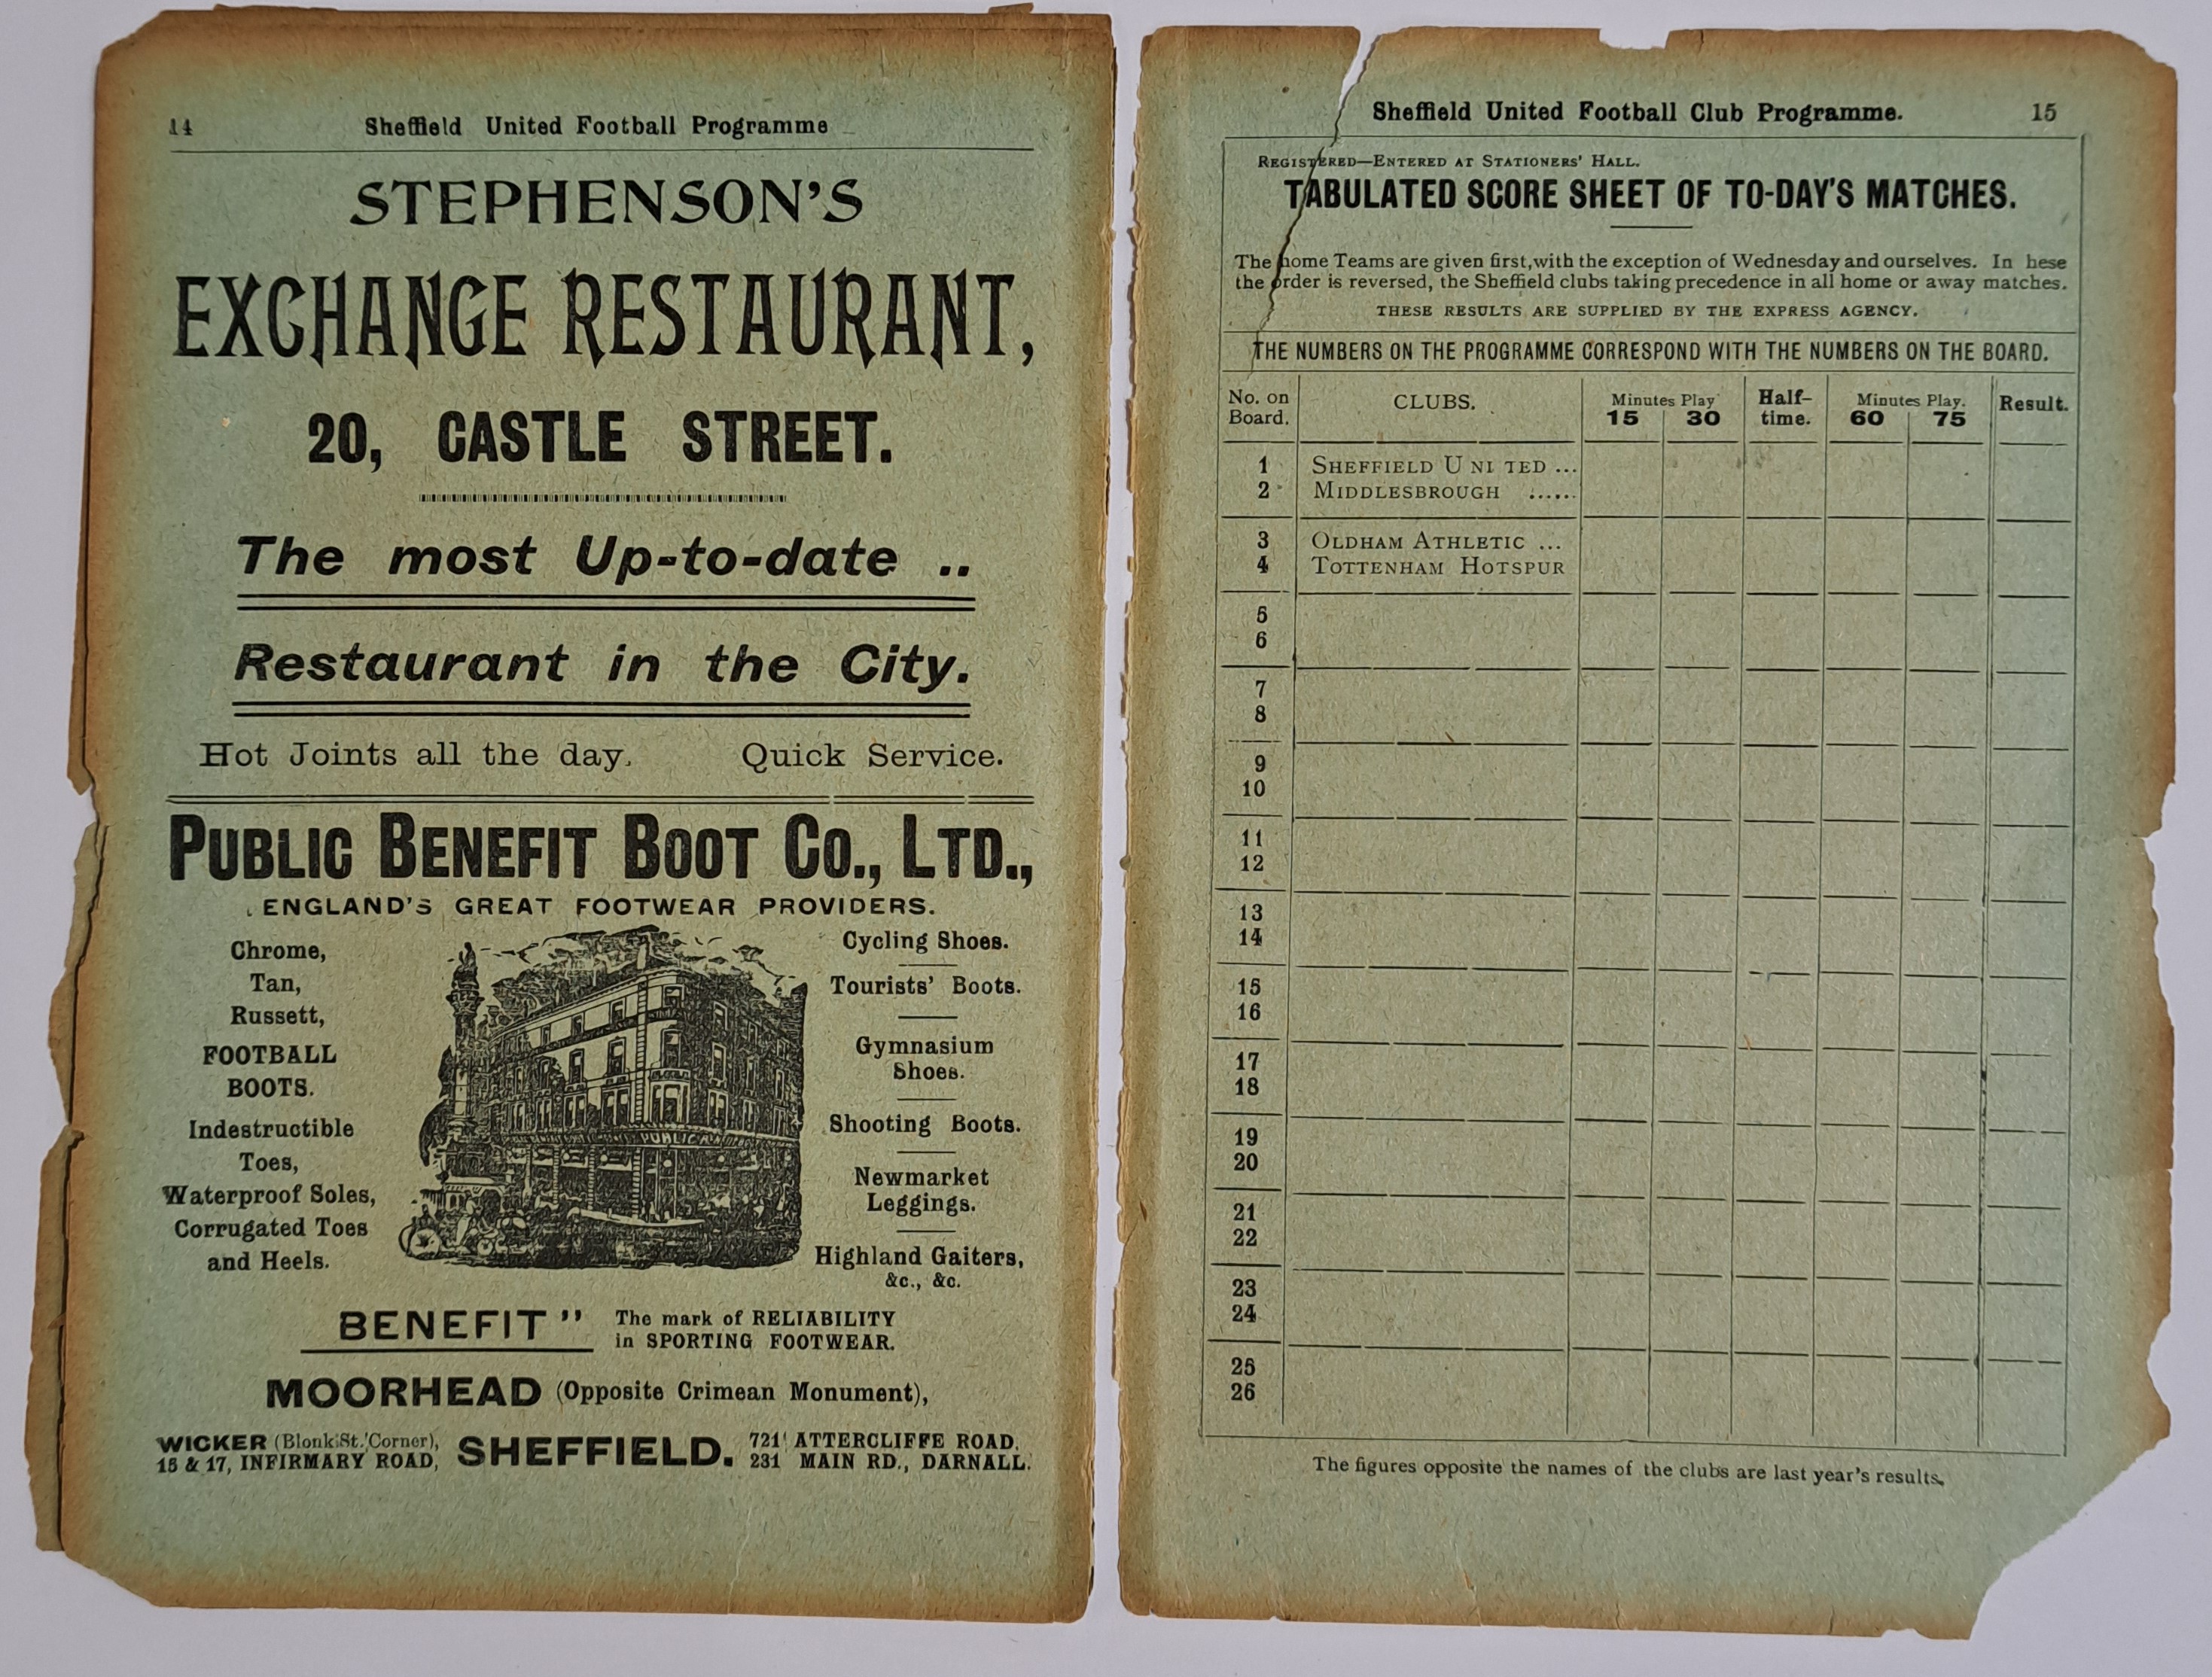 14 Sheffield United Football Programme
STEPHENSON'S
EXCHANGE RESTAURANT,
20, CASTLE STREET.
The most Up-to-date ..
Restaurant in the City.
Hot Joints all the day. Quick Service.
PUBLIC BENEFIT BOOT CO., LTD.,
ENGLAND'S GREAT FOOTWEAR PROVIDERS.
Chrome,
Tan,
Russett,
FOOTBALL
BOOTS.
Indestructible
Toes,
Waterproof Soles,
Corrugated Toes
and Heels.
PUBLIC
Cycling Shoes.
Tourists' Boots.
Gymnasium
Shoes.
Shooting Boots.
Newmarket
Leggings.
Highland Gaiters,
&c., &c.
BENEFIT" The mark of RELIABILITY
in SPORTING FOOTWEAR.
MOORHEAD (Opposite Crimean Monument),
WICKER (Blonk St. Corner),
15 & 17, INFIRMARY ROAD,
SHEFFIELD.
721 ATTERCLIFFE ROAD.
231 MAIN RD., DARNALL.
Sheffield United Football Club Programme. 15
REGISTERED—ENTERED AT STATIONERS' HALL.
TABULATED SCORE SHEET OF TO-DAY'S MATCHES.
The home Teams are given first, with the exception of Wednesday and ourselves. In hese
the order is reversed, the Sheffield clubs taking precedence in all home or away matches.
THESE RESULTS ARE SUPPLIED BY THE EXPRESS AGENCY.
THE NUMBERS ON THE PROGRAMME CORRESPOND WITH THE NUMBERS ON THE BOARD.
No. on Board. CLUBS. Minutes Play 15 30 Half-time. Minutes Play. 60 75 Result.
1 SHEFFIELD UNITED ...
2 MIDDLESBROUGH ......
3 OLDHAM ATHLETIC ...
4 TOTTENHAM HOTSPUR
5
6
7
8
9
10
11
12
13
14
15
16
17
18
19
20
21
22
23
24
25
26
The figures opposite the names of the clubs are last year's results.